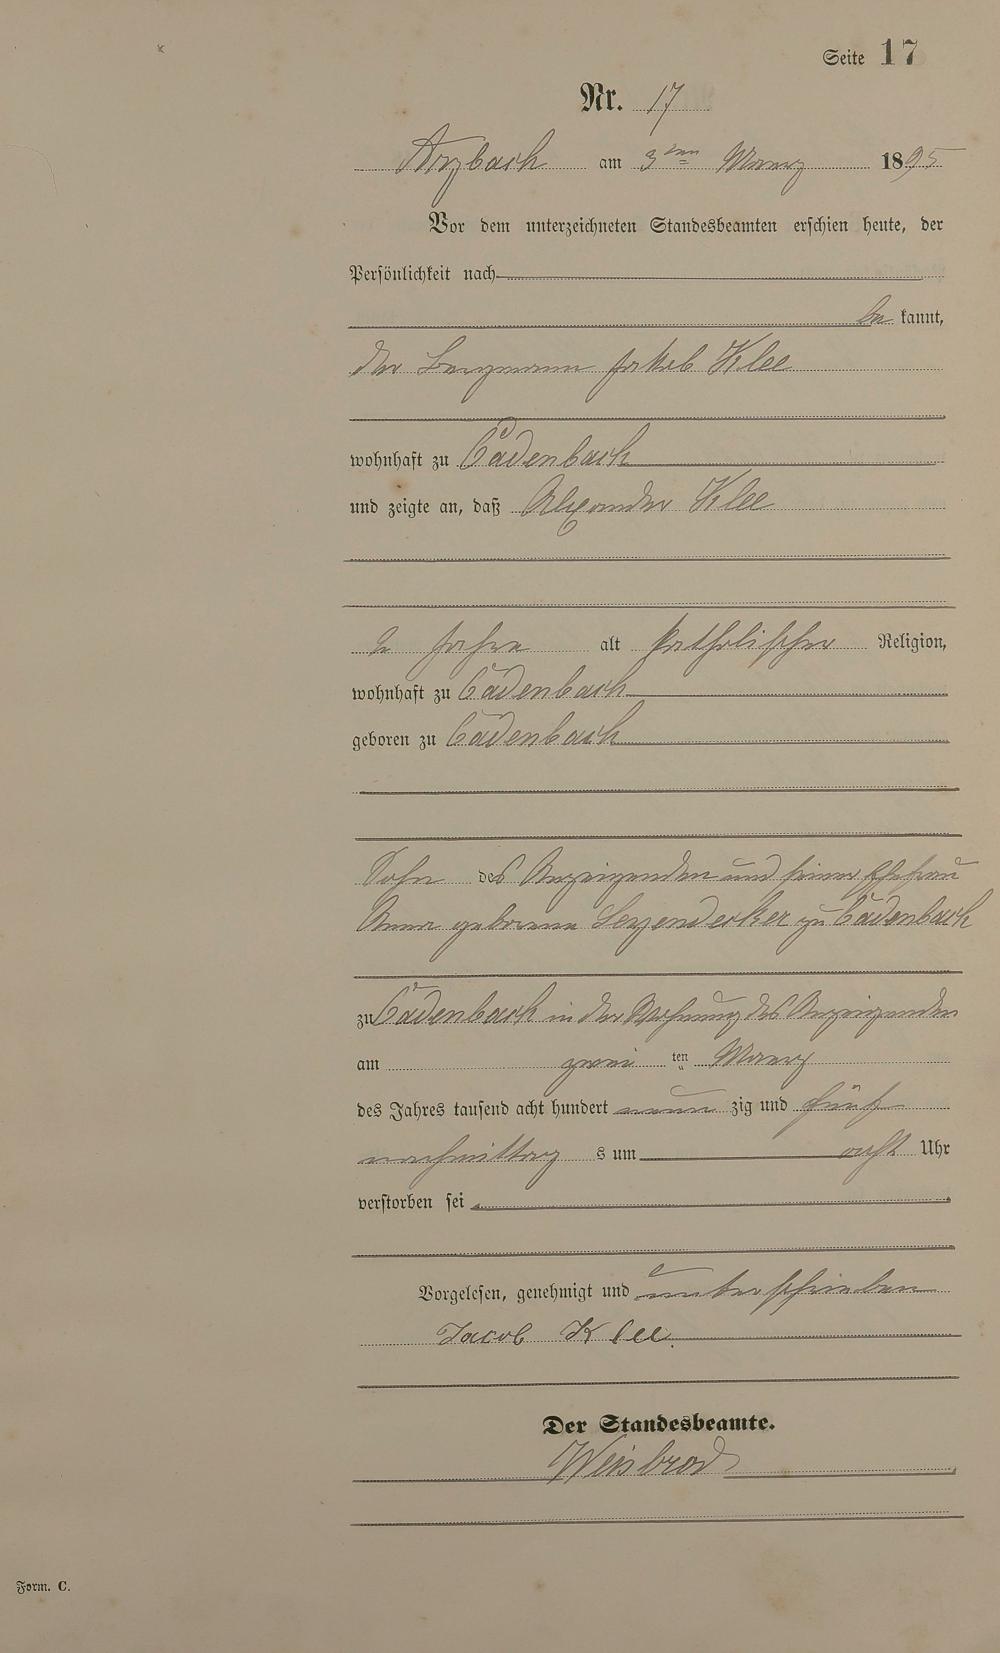 Seite 17
Nr. 17
Arzbach am 3ten März 1895
Vor dem unterzeichneten Standesbeamten erschien heute, der
Persönlichkeit nach
be kannt,
der Bergmann Jakob Klee
wohnhaft zu Cadenbach
und zeigte an, daß Alexander Klee
2 Jahre alt katholischer Religion,
wohnhaft zu Cadenbach
geboren zu Cadenbach
Sohn des Anzeigenden und seiner Ehefrau
Anna geborene zu Cadenbach
zu Cadenbach in der Wohnung des Anzeigenden
am zwei ten März
des Jahres tausend acht hundert neun zig und fünf
nachmittag s um acht Uhr
verstorben sei
Vorgelesen, genehmigt und unterschrieben
Jacob Klee
Der Standesbeamte.
Weisbrod
Form. C.